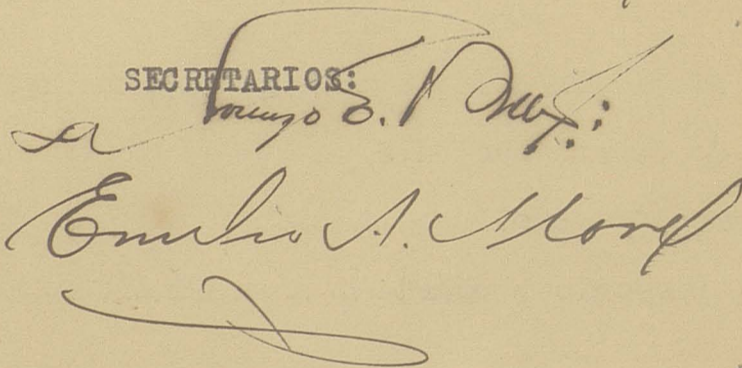 SECRETARIOS:
Lorenzo E.
Emilio A. Morel